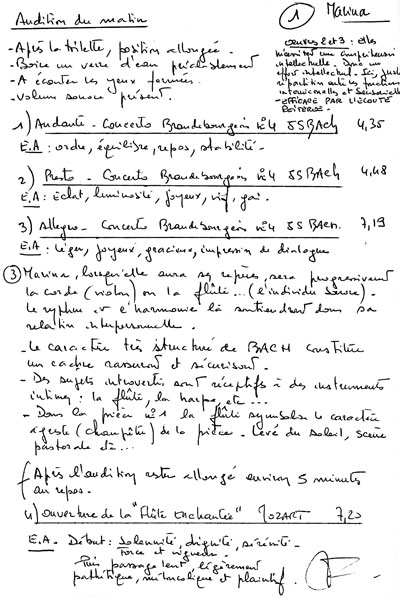 Audition du matin
① Marina
- Après la toilette, position allongée.
- Boire un verre d'eau précédemment
- A écouter les yeux fermés.
- Volume sonore présent.
œuvres 2 et 3 : elles
nécessitent une compréhension
intellectuelle. Donc un
effort intellectuel. Ici, juste
répartition entre les fonctions
émotionnelles et sensorielles
- EFFICACE PAR L'ÉCOUTE
RÉITÉRÉE.
1) Andante - Concerto Brandebourgeois n°4 JS BACH 4,35
E.A : ordre, équilibre, repos, stabilité -
2) Presto - Concerto Brandebourgeois n°4 JS BACH 4,48
E.A : Eclat, luminosité, joyeux, vif, gai.
3) Allegro - Concerto Brandebourgeois n°4 JS BACH. 7,19
E.A : léger, joyeux, gracieux, impression de dialogue
③ Marina, lorsqu'elle aura ses repères, sera progressivement
la corde (violon) ou la flûte... (l'individu Sèvre).
le rythme et l'harmonie la soutiendront dans sa
relation interpersonnelle.
- Le caractère très structuré de BACH constitue
un cadre rassurant et sécurisant.
- Des sujets introvertis sont réceptifs à des instruments
intimes : la flûte, la harpe, etc...
- Dans la pièce n°1 la flûte symbolise le caractère
agreste (champêtre) de la pièce. Levé du soleil, scène
pastorale etc...
Après l'audition rester allongé environ 5 minutes
au repos.
4) ouverture de la "flûte Enchantée" MOZART 7,20
E.A - Début : solennité, dignité, sérénité -
Force et vigueur -
Puis passage lent, légèrement
pathétique, mélancolique et plaintif.